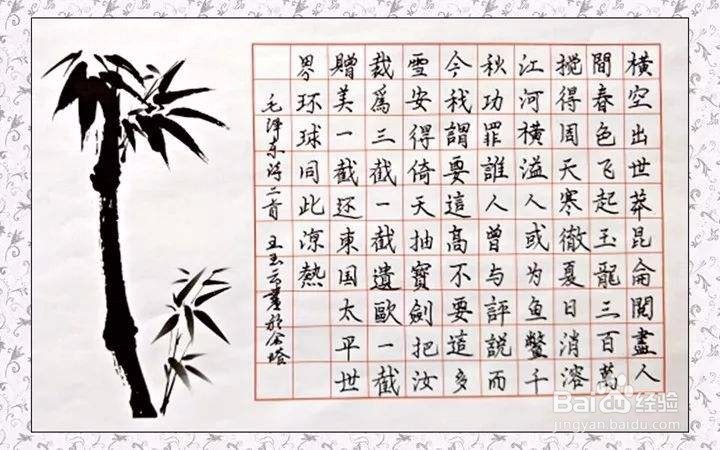 横空出世莽昆侖閲盡人
間春色飞起玉龍三百萬
搅得周天寒徹夏日消溶
江河横溢人或为鱼鳖千
秋功罪誰人曾与評説而
今我謂要這高不要這多
雪安得倚天抽寶劍把汝
裁爲三截一截遺歐一截
贈美一截还東国太平世
界环球同此凉熱
毛澤东诗二首 王玉云書於金塔
Baidu经验
jingyan.baidu.com